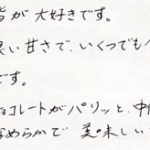 が 大好きです。
良い甘さで、いくつでも
です。
コレートがパリッと、中
なめらかで 美味しい